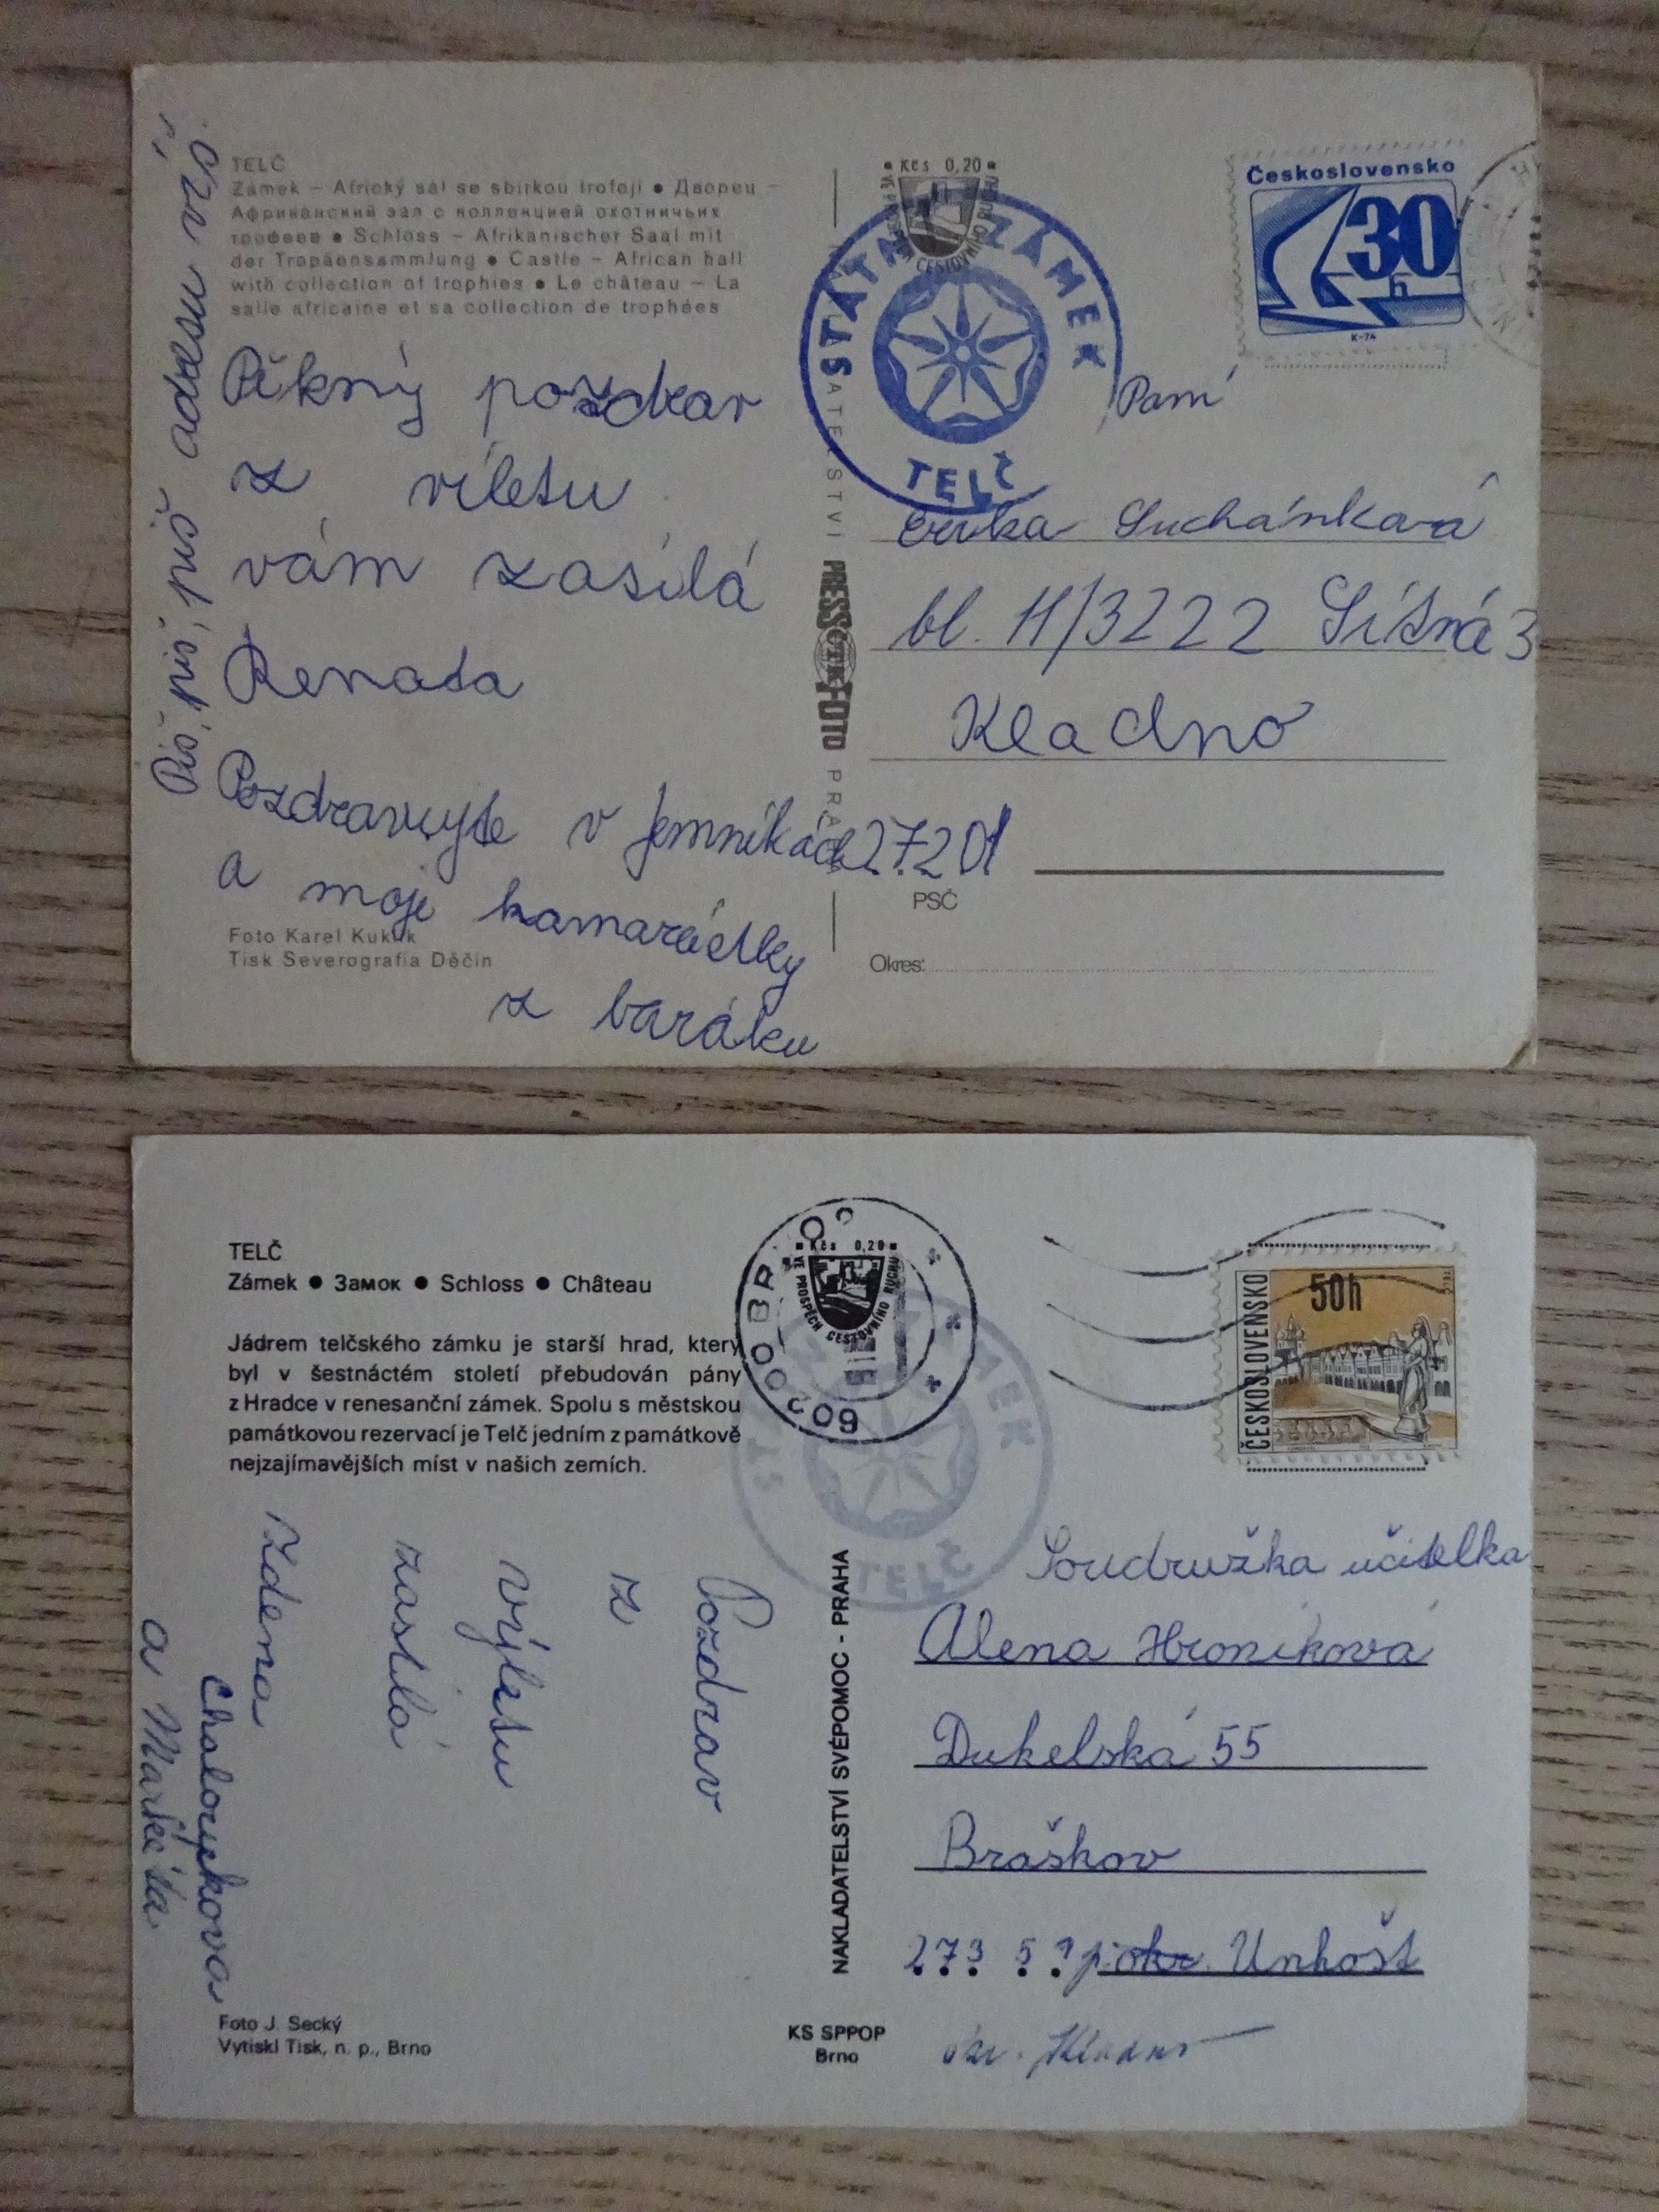 TELČ
Zámek – Africký sál se sbírkou trofejí ● Дворец –
Африканский зал с коллекцией охотничьих
трофеев ● Schloss – Afrikanischer Saal mit
der Tropäensammlung ● Castle – African hall
with collection of trophies ● Le château – La
salle africaine et sa collection de trophées
Pěkný pozdrav
z víletu
vám zasílá
Renata
Pozdravujte v Jemníkách
a moje kamarádky
z baráku
Foto Karel Kuklík
Tisk Severografia Děčín
Piš, piš, piš adresu víš
Kčs 0,20
CESTOVNÍHO RUCHU
STÁTNÍ ZÁMEK
TELČ
PRESSFOTO
Československo
30
K-74
Paní
Erika Suchánková
bl. 11/3222 Sítná 3
Kladno
27201
PSČ
Okres:
TELČ
Zámek ● Замок ● Schloss ● Château
Jádrem telčského zámku je starší hrad, který
byl v šestnáctém století přebudován pány
z Hradce v renesanční zámek. Spolu s městskou
památkovou rezervací je Telč jedním z památkově
nejzajímavějších míst v našich zemích.
Pozdrav
z
výletu
zasílá
Zdena
Chaloupková
a Markéta
Foto J. Secký
Vytiskl Tisk, n. p., Brno
Kčs 0,20
VE PROSPĚCH CESTOVNÍHO RUCHU
ZÁMEK
TELČ
NAKLADATELSTVÍ SVÉPOMOC - PRAHA
KS SPPOP
Brno
ČESKOSLOVENSKO
50h
Soudružka učitelka
Alena Hroníková
Dukelská 55
Braškov
273 5 p. okr. Unhošť
okr. Kladno